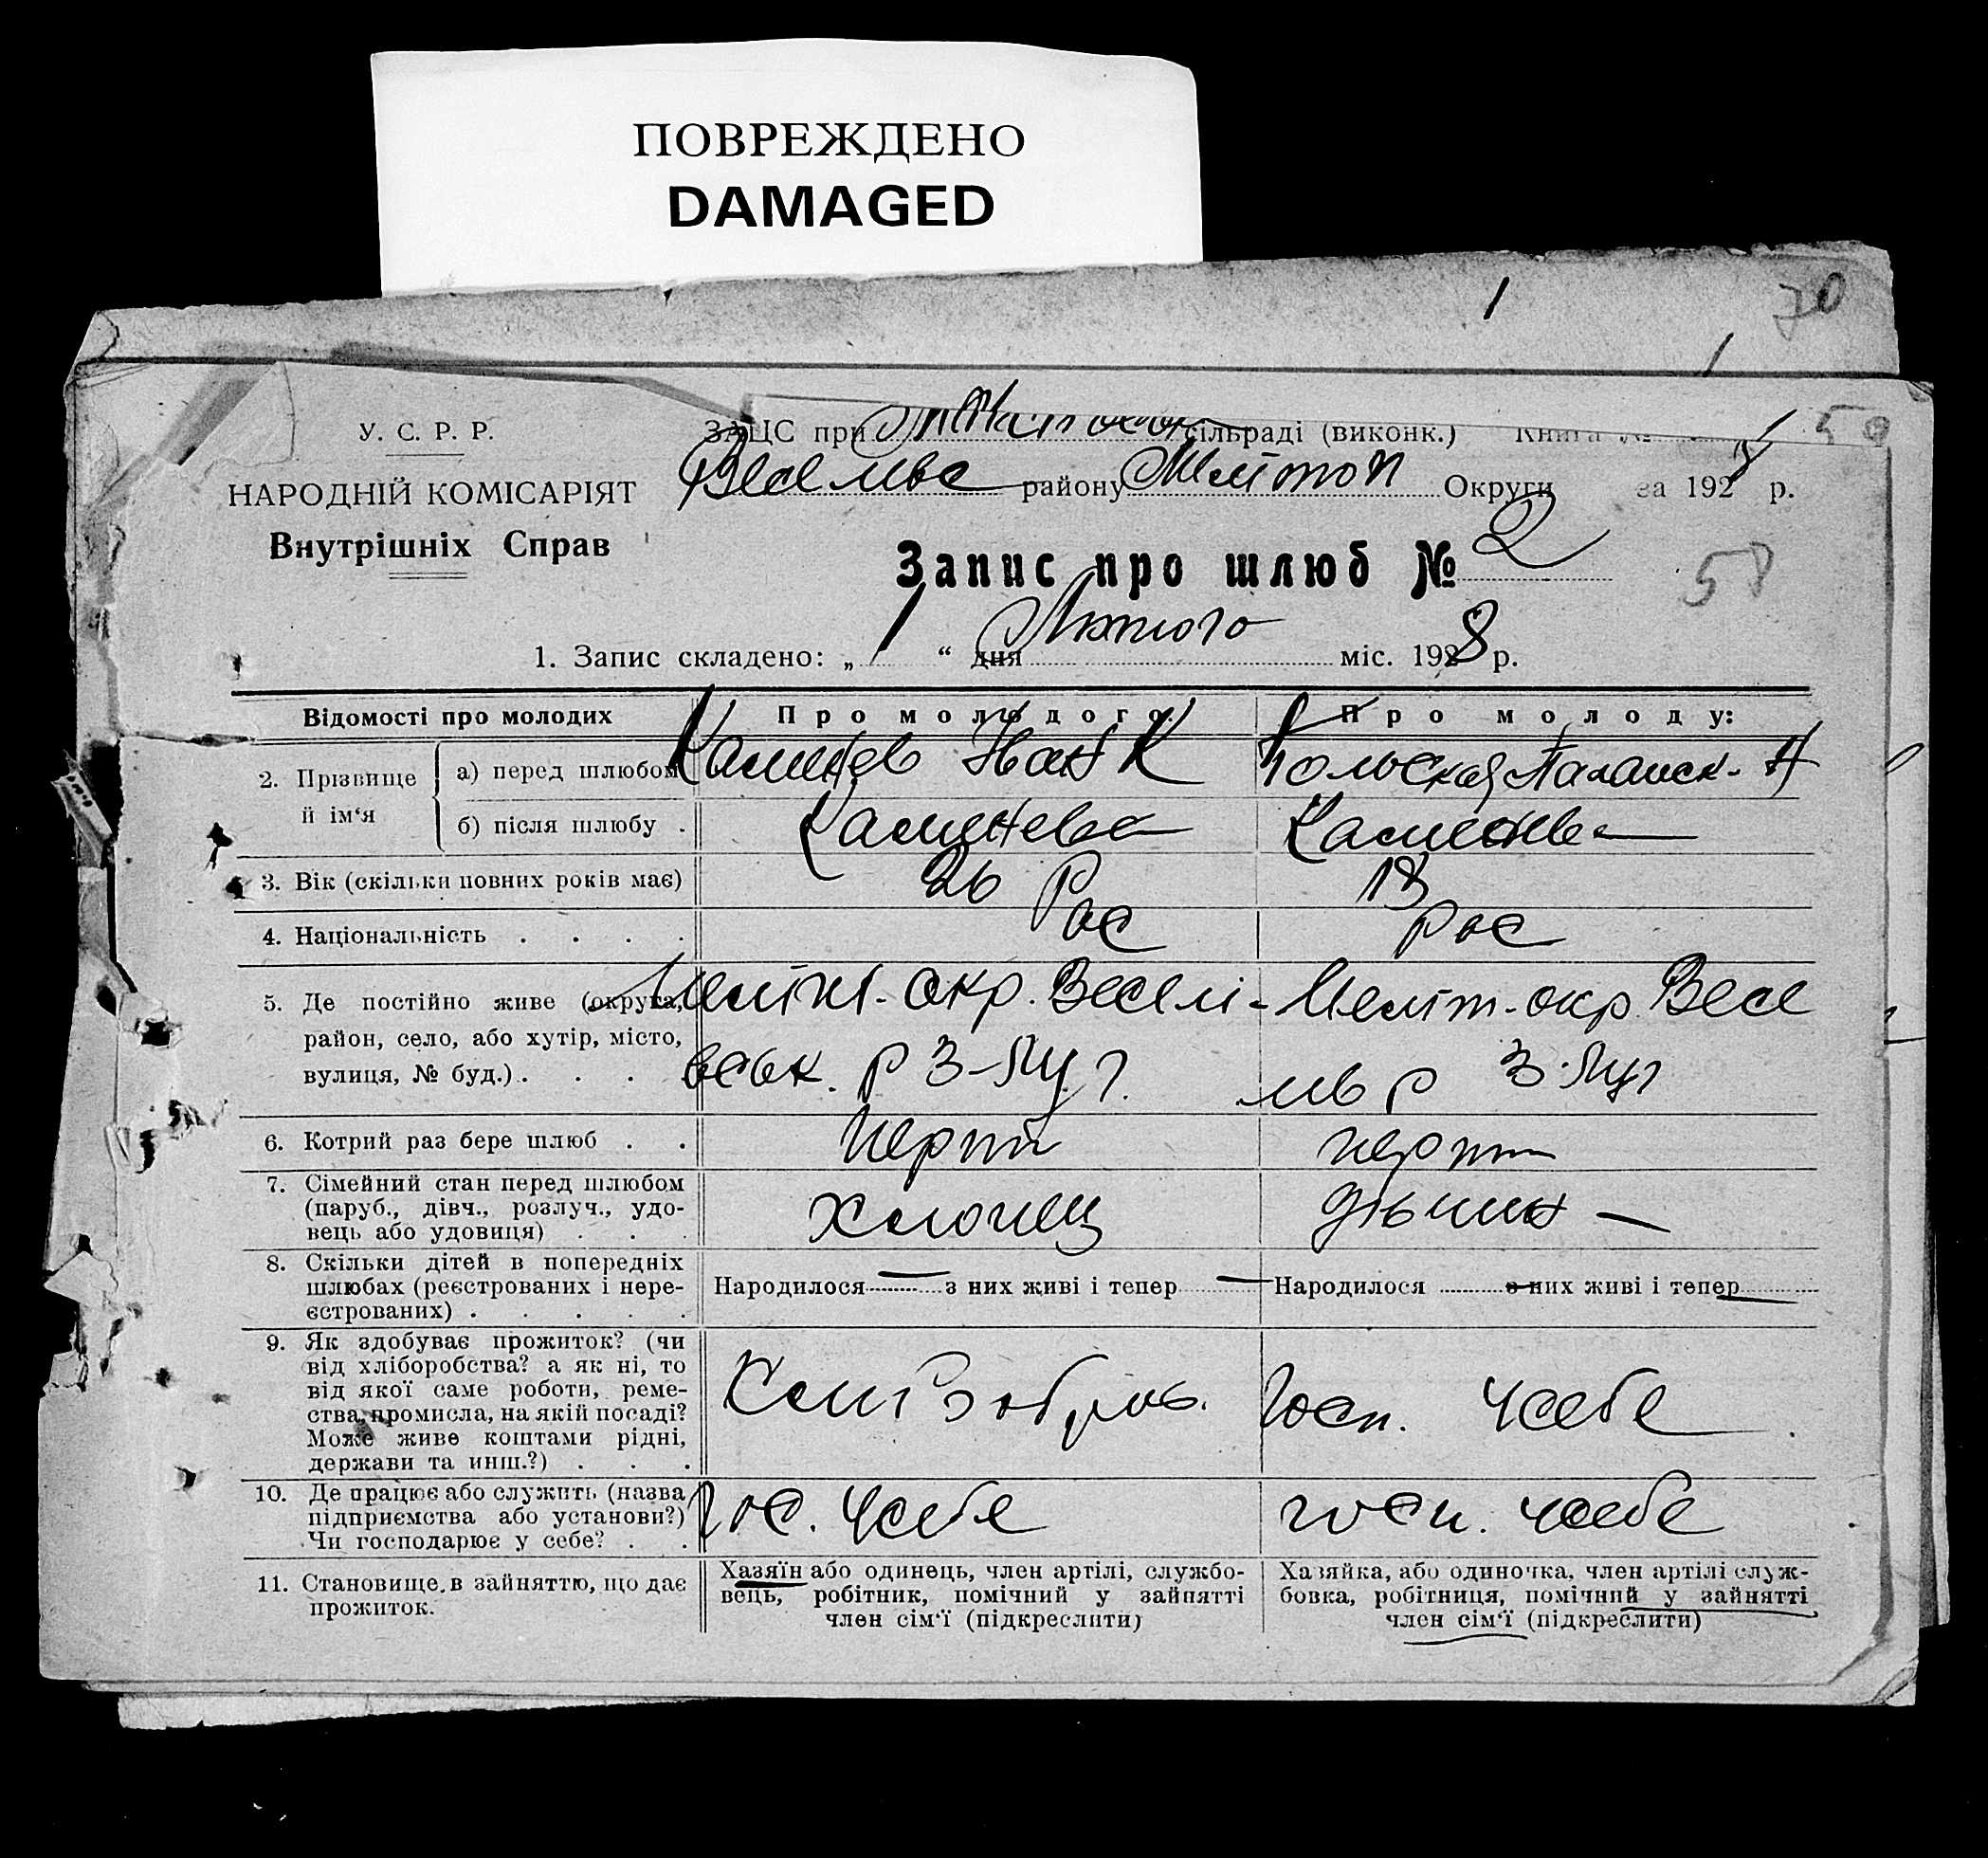 ПОВРЕЖДЕНО
DAMAGED
70
У. С. Р. Р.
НАРОДНІЙ КОМІСАРІЯТ
Внутрішніх Справ
ЗАЦС при сільраді (виконк.) Книга №
50
району Мелітоп Округи за 1928 р.
Запис про шлюб № 2
58
1. Запис складено: „ 1 “ дня Лютого міс. 1928 р.
Відомості про молодих
Про молодого:
Про молоду:
2. Прізвище й ім‘я
а) перед шлюбом
Каменев Иван К
б) після шлюбу .
Каменева
Каменева
3. Вік (скільки повних років має)
26
18
4. Національність . . . .
Рос
Рос
5. Де постійно живе (округа,
район, село, або хутір, місто,
вулиця, № буд.) . . .
Меліт. окр. Веселі-
вськ. р
Меліт. окр Весе
лів р
6. Котрий раз бере шлюб . .
перш
перш
7. Сімейний стан перед шлюбом
(паруб., дівч., розлуч., удо-
вець або удовиця) . . .
Хлопец
8. Скільки дітей в попередніх
шлюбах (реєстрованих і нере-
єстрованих) . . . . .
Народилося — з них живі і тепер —
Народилося — з них живі і тепер —
9. Як здобуває прожиток? (чи
від хліборобства? а як ні, то
від якої саме роботи, реме-
ства, промисла, на якій посаді?
Може живе коштами рідні,
держави та инш.?) . . .
Госп. у себе
10. Де працює або служить (назва
підприємства або установи?)
Чи господарює у себе? . .
Гос. у себе
госп. у себе
11. Становище в зайняттю, що дає
прожиток.
Хазяїн або одинець, член артілі, службо-
вець, робітник, помічний у зайнятті
член сім‘ї (підкреслити)
Хазяйка, або одиночка, член артілі служ-
бовка, робітниця, помічний у зайнятті
член сім‘ї (підкреслити)